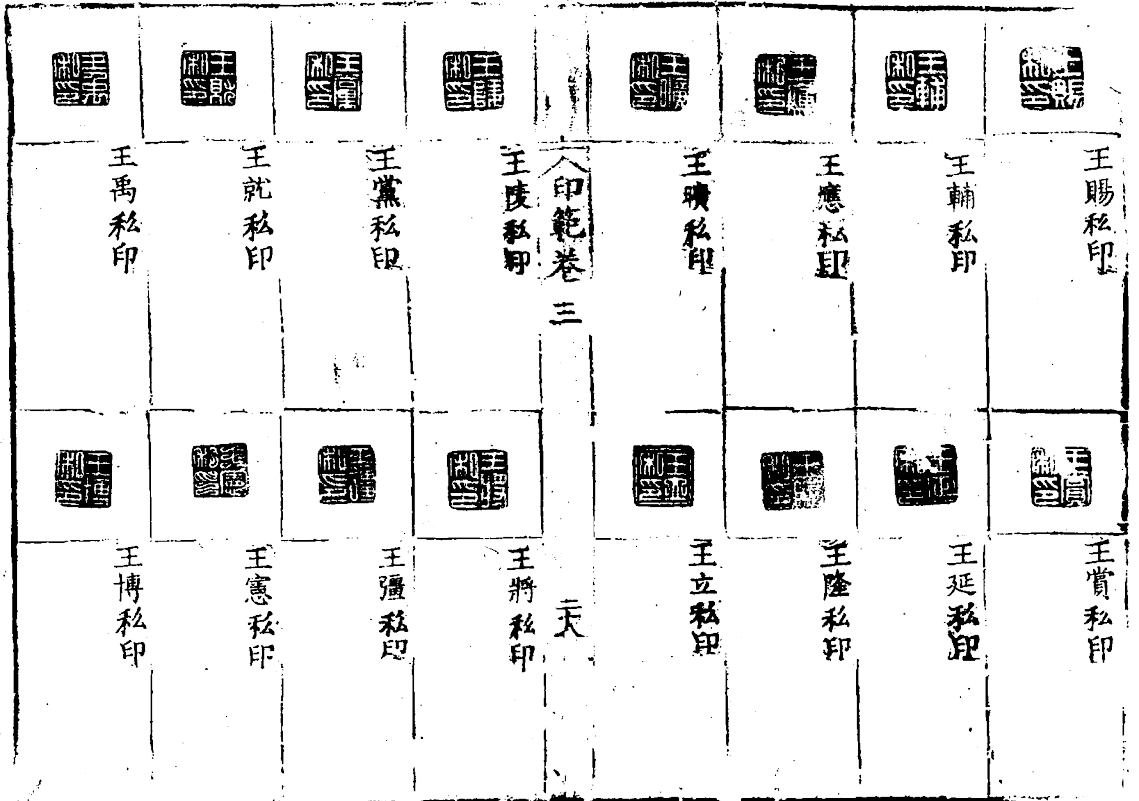 王賜私印
王輔私印
王應私印
王曠私印
王賞私印
王延私印
王隆私印
王立私印
印範卷三
二十八
王陵私印
王黨私印
王就私印
王禹私印
王將私印
王彊私印
王憲私印
王博私印